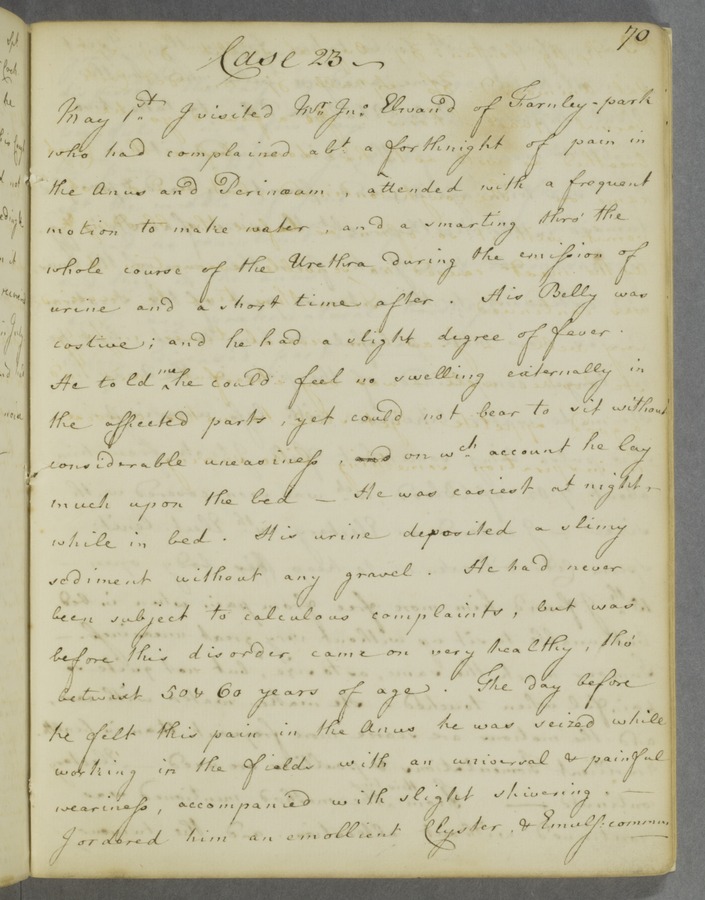 70
Case 23
May 1st. I visited Mr. Jno. Elwand of Farnley-park
who had complained abt. a forthnight of pain in
the Anus and Perinæum, attended with a frequent
motion to make water, and a smarting thro' the
whole course of the Urethra during the emission of
urine and a short time after. His Belly was
costive; and he had a slight degree of fever.
He told me he could feel no swelling externally in
the affected parts, yet could not bear to sit without
considerable uneasiness, and on wch. account he lay
much upon the bed — He was easiest at night &
while in bed. His urine deposited a slimy
sediment without any gravel. He had never
been subject to calculous complaints, but was
before this disorder came on very healthy, tho'
betwixt 50 & 60 years of age. The day before
he felt this pain in the Anus he was seized while
working in the fields with an universal & painful
weariness, accompanied with slight shivering. —
I ordered him an emollient Clyster, & Emuls: commun